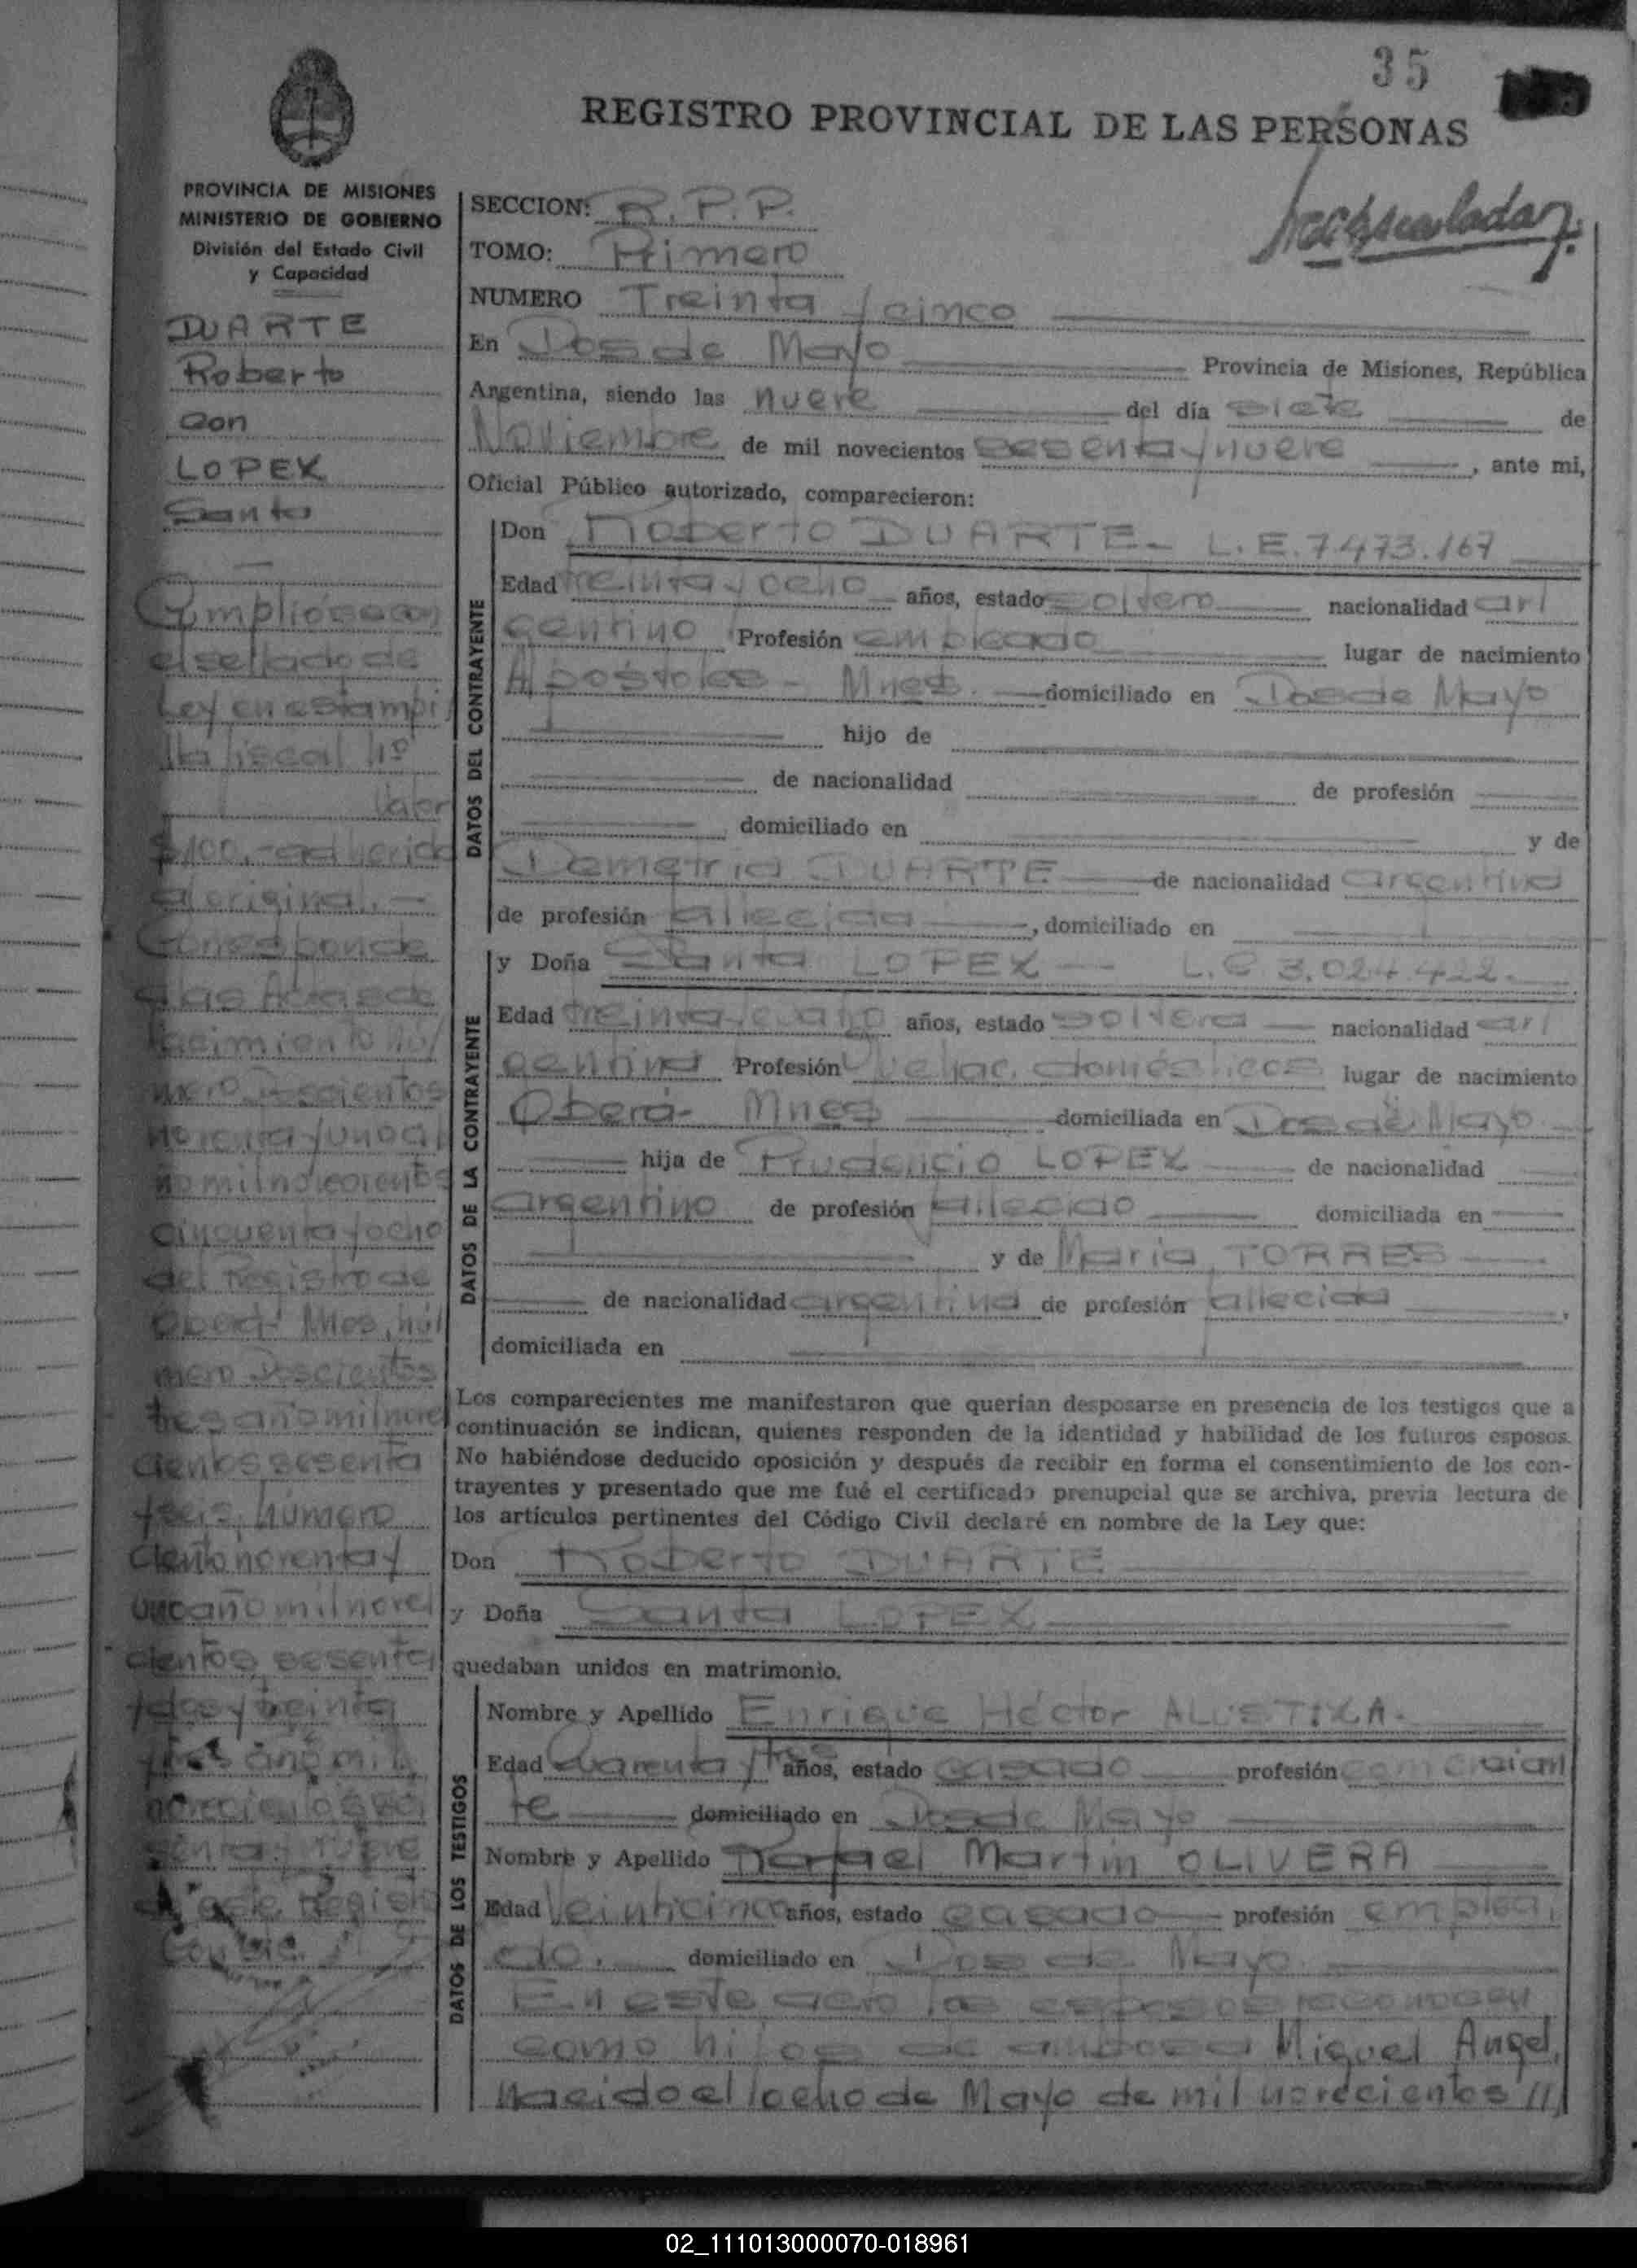 35
REGISTRO PROVINCIAL DE LAS PERSONAS
PROVINCIA DE MISIONES
MINISTERIO DE GOBIERNO
División del Estado Civil
y Capacidad
DUARTE
Roberto
con
LOPEX
Santa
Cumplióse con
el sellado de
Ley en estampi
lla fiscal nº
valor
$100.- adherida
al original.-
Corresponde
a las Actas de
nacimiento nú/
mero Doscientos
noventa y uno a/
ño mil novecientos
cincuenta y ocho
del Registro de
Oberá Mnes, nú/
mero Doscientos
tres año mil nove/
cientos sesenta
y seis, número
ciento noventa y
uno año mil nove/
cientos sesenta/
y dos y treinta
y tres año mil
novecientos se/
senta y nueve
de este Registro
SECCION: R.P.P.
TOMO: Primero
NUMERO Treinta y cinco
En Dos de Mayo Provincia de Misiones, República
Argentina, siendo las nueve del día siete de
Noviembre de mil novecientos sesenta y nueve , ante mi,
Oficial Público autorizado, comparecieron:
DATOS DEL CONTRAYENTE
Don Roberto DUARTE.- L.E.7473.167
Edad treinta y ocho años, estado soltero nacionalidad ar/
gentino Profesión empleado lugar de nacimiento
Apóstoles - Mnes. domiciliado en Dos de Mayo
hijo de
de nacionalidad de profesión
domiciliado en y de
Demetria DUARTE de nacionalidad argentina
de profesión fallecida , domiciliado en
DATOS DE LA CONTRAYENTE
y Doña Santa LOPEX L.C. 3.024.422.
Edad treinta y años, estado soltera nacionalidad ar/
gentina Profesión Quehac. domésticos lugar de nacimiento
Oberá- Mnes domiciliada en Dos de Mayo
hija de Prudencio LOPEX de nacionalidad
argentino de profesión fallecido domiciliada en
y de María TORRES
de nacionalidad argentina de profesión fallecida ,
domiciliada en
Los comparecientes me manifestaron que querían desposarse en presencia de los testigos que a
continuación se indican, quienes responden de la identidad y habilidad de los futuros esposos.
No habiéndose deducido oposición y después de recibir en forma el consentimiento de los con-
trayentes y presentado que me fué el certificado prenupcial que se archiva, previa lectura de
los artículos pertinentes del Código Civil declaré en nombre de la Ley que:
Don Roberto DUARTE
y Doña Santa LOPEX
quedaban unidos en matrimonio.
DATOS DE LOS TESTIGOS
Nombre y Apellido Enrique Héctor ALUSTIXA.
Edad Cuarenta y tres años, estado casado profesión comercian
te domiciliado en Dos de Mayo
Nombre y Apellido Rafael Martin OLIVERA
Edad Veinticinco años, estado casado profesión emplea/
do. domiciliado en Dos de Mayo.
En este acto los esposos reconocen
como hijos de ambos a Miguel Angel,
nacido el ocho de Mayo de mil novecientos //
02_111013000070-018961